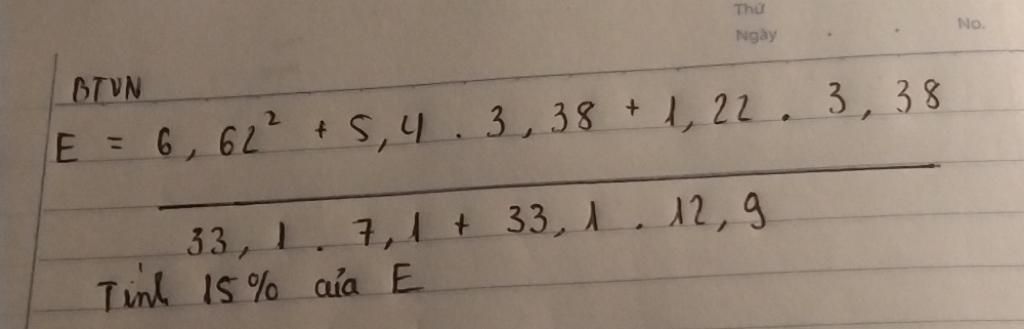 Thứ
Ngày . . No.
BTVN
E = 6,62² + 5,4 . 3,38 + 1,22 . 3,38
33,1 . 7,1 + 33,1 . 12,9
Tính 15% của E